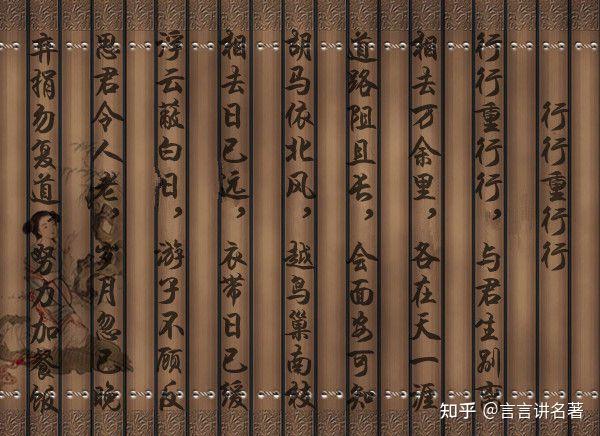 行行重行行
行行重行行，与君生别离
相去万余里，各在天一涯
道路阻且长，会面安可知
胡马依北风，越鸟巢南枝
相去日已远，衣带日已缓
浮云蔽白日，游子不顾反
思君令人老，岁月忽已晚
弃捐勿复道 努力加餐饭
知乎 @言言讲名著